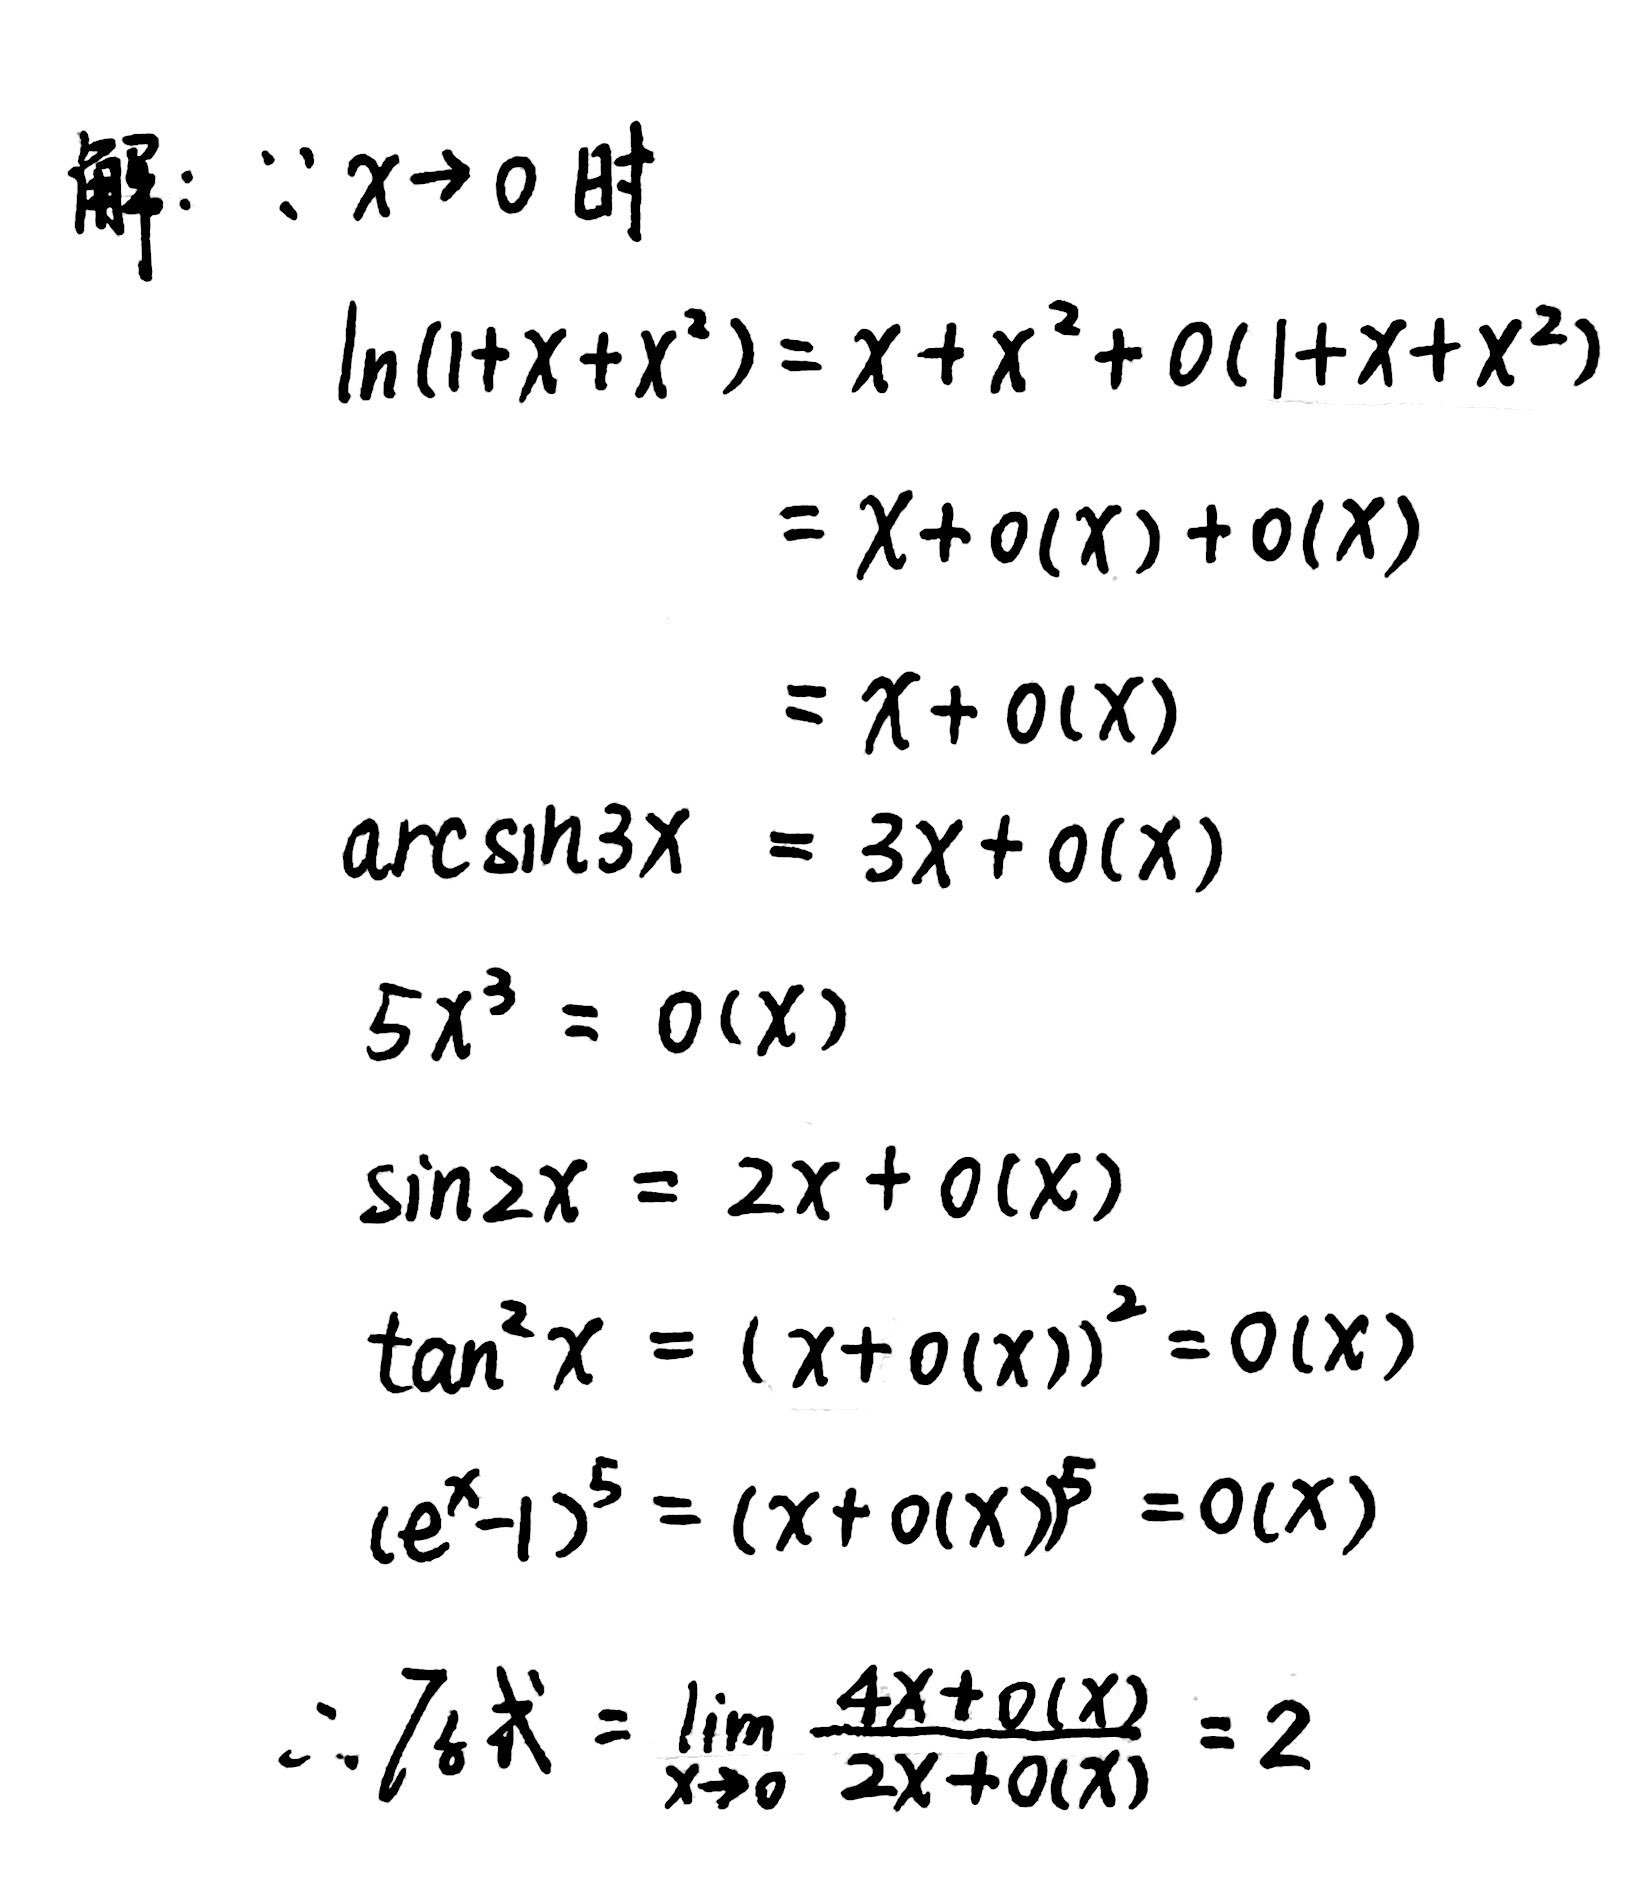 解: ∵ x→0 时
ln(1+x+x²) = x+x²+o(1+x+x²)
= x+o(x)+o(x)
= x+o(x)
arcsin3x = 3x+o(x)
5x³ = o(x)
sin2x = 2x+o(x)
tan²x = (x+o(x))² = o(x)
(eˣ-1)⁵ = (x+o(x))⁵ = o(x)
∴ 原式 = lim_{x→0} (4x+o(x))/(2x+o(x)) = 2